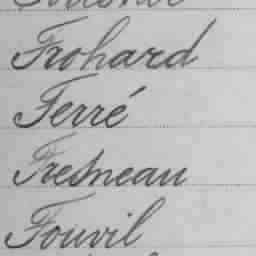 Frohard
Ferré
Fresneau
Fouvil